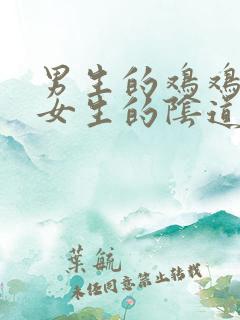 男生的鸡鸡
女生的陰道
葉航
未经同意禁止转载